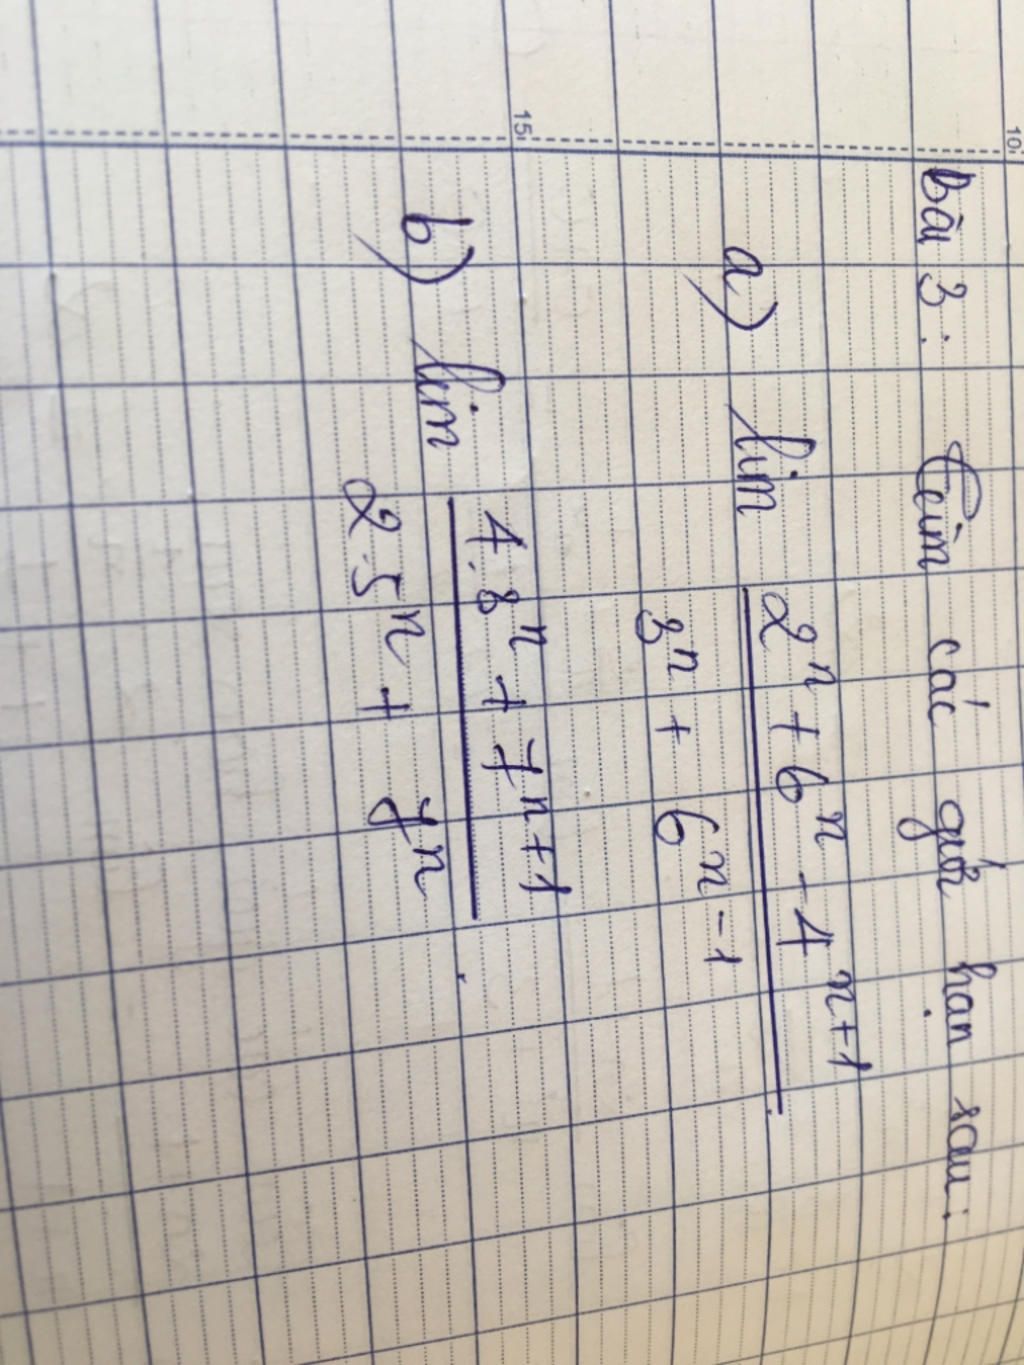 10
bài 3: Tìm các giới hạn sau:
a) lim (2^n + 6^n - 4^{n+1}) / (3^n + 6^{n-1})
15
b) lim (4.8^n + 7^{n+1}) / (2.5^n + 7^n).